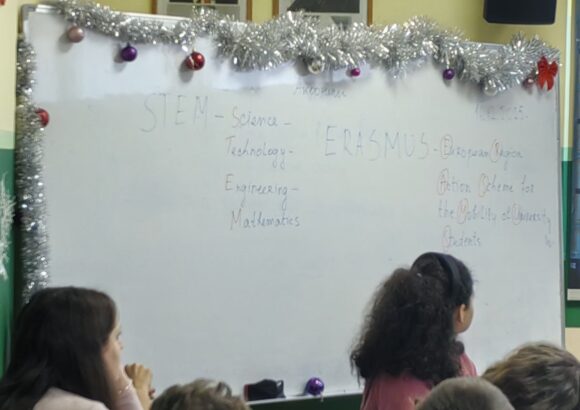 STEM - Science -
Technology -
Engineering -
Mathematics
ERASMUS - European Region
Action Scheme for
the Mobility of University
Students